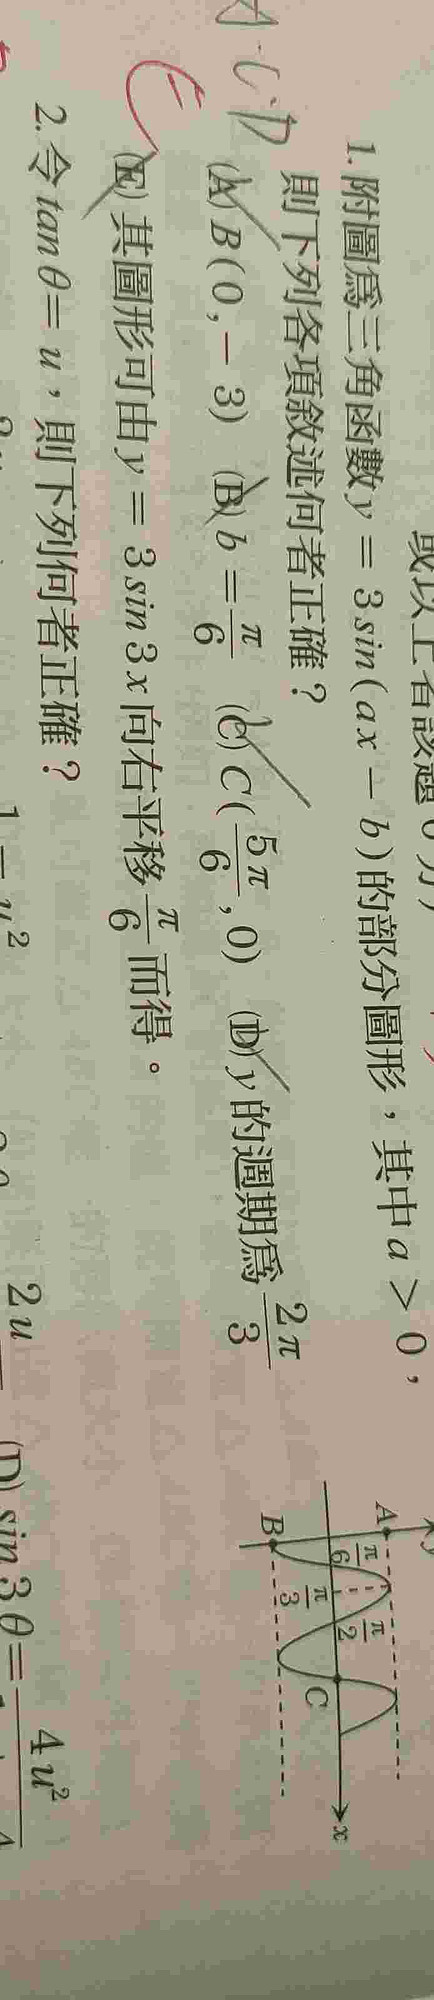 1. 附圖為三角函數 y = 3 sin(ax − b) 的部分圖形，其中 a > 0，
則下列各項敘述何者正確？
(A) B(0, −3) (B) b = π/6 (C) C(5π/6, 0) (D) y 的週期為 2π/3
(E) 其圖形可由 y = 3 sin 3x 向右平移 π/6 而得。
A
B
C
x
y
π/6
π/3
π/2
E
2. 令 tan θ = u，則下列何者正確？
2u
(D) sin 3θ = 4u²